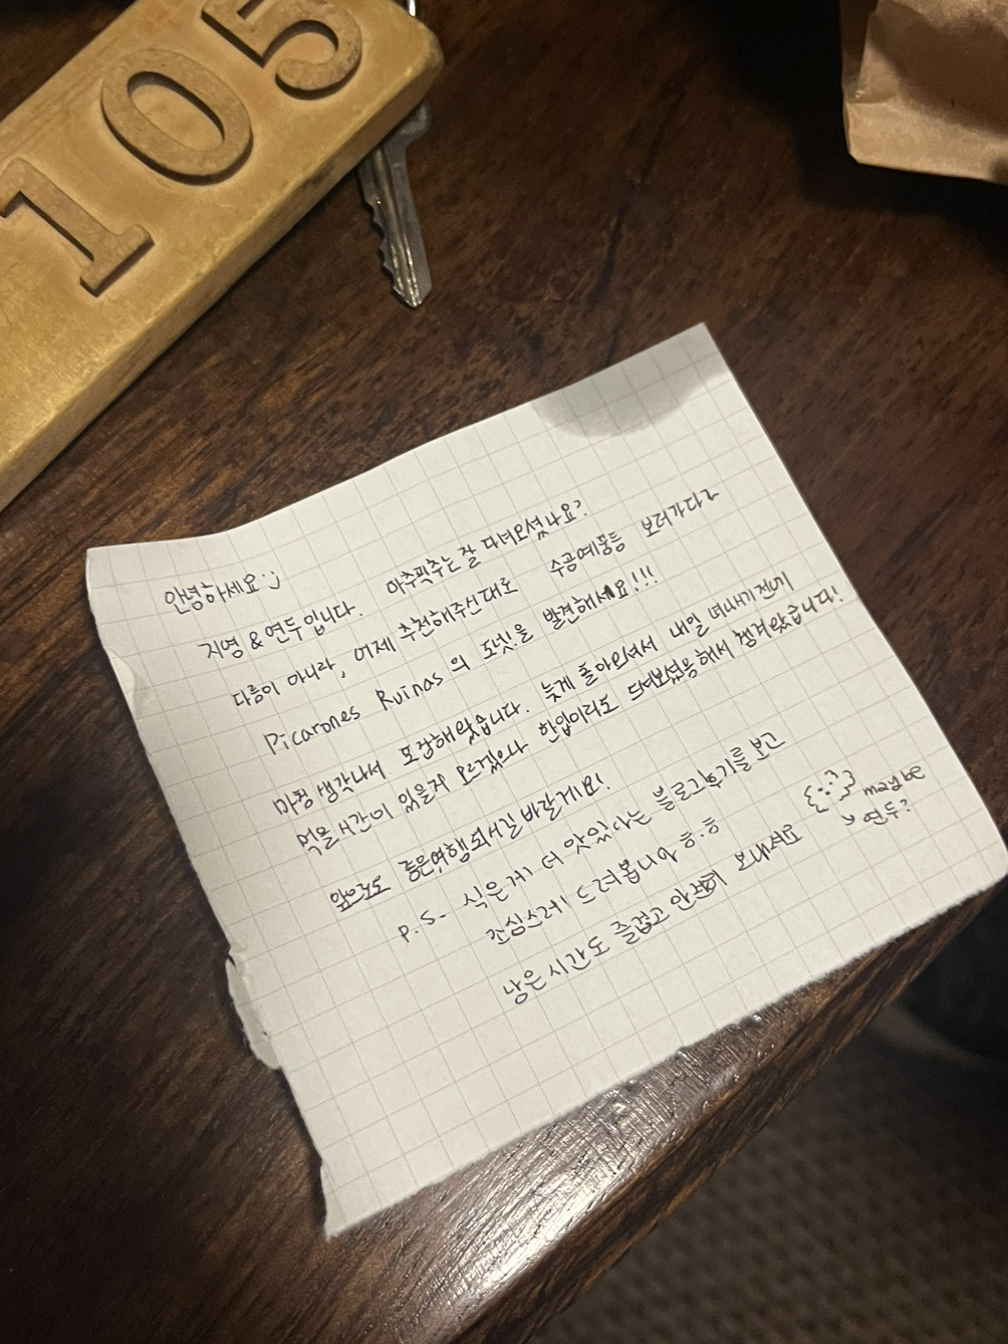 105
안녕하세요 :)
지영 & 연두입니다. 마추픽추는 잘 다녀오셨나요?
다름이 아니라, 어제 추천해주신대로 수공예품등 보러가다가
Picarones Ruinas 의 도넛을 발견해서요!!!
마침 생각나서 포장해왔습니다. 늦게 돌아오셔서 내일 떠나기전에
먹을 시간이 있을지 모르겠으나 한입이라도 드셔보셨음해서 챙겨왔습니다!
앞으로도 좋은여행되시길 바랄게요!
P.S. 식은게 더 맛있다는 블로그후기를 보고
조심스레 드려봅니다 ㅎ.ㅎ
남은시간도 즐겁고 안전하게 보내세요
maybe
연두?